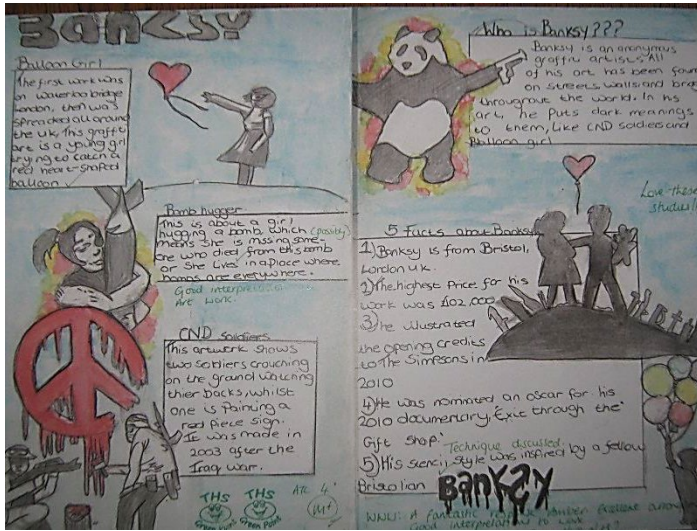 BANKSY
Balloon Girl
The first work was
on Waterloo bridge
London, then was
spreaded all around
the UK. This graffti
art is a young girl
trying to catch a
red heart-shaped
balloon
Bomb hugger
This is about a girl
hugging a bomb, which (possibly)
means she is missing some-
one who died from this bomb
or she lives in a place where
bombs are everywhere.
Good interpretation
Art work.
CND Soldiers
This artwork shows
two soldiers crouching
on the ground watching
thier backs, whilst
one is painting a
red piece sign.
It was made in
2003 after the
Iraq war.
THS
Green Point
THS
Green Point
4
M+
Who is Banksy???
Banksy is an anonymous
graffiti artists. All
of his art has been found
on streets, walls and
throughout the world. In his
art, he puts dark meanings
to them, like CND soldiers and
Balloon girl
Love these
studies
5 facts about Banksy
1) Banksy is from Bristol,
London UK.
2) The highest price for his
work was £102,000
3) he illustrated
the opening credits
to The Simpsons in
2010
4) He was nominated an oscar for his
2010 documentary, 'Exit through the
Gift Shop.' Technique discussed.
5) His stencil style was inspired by a fellow
Bristolian
BANKSY
WWW: A fantastic
Good interpretation